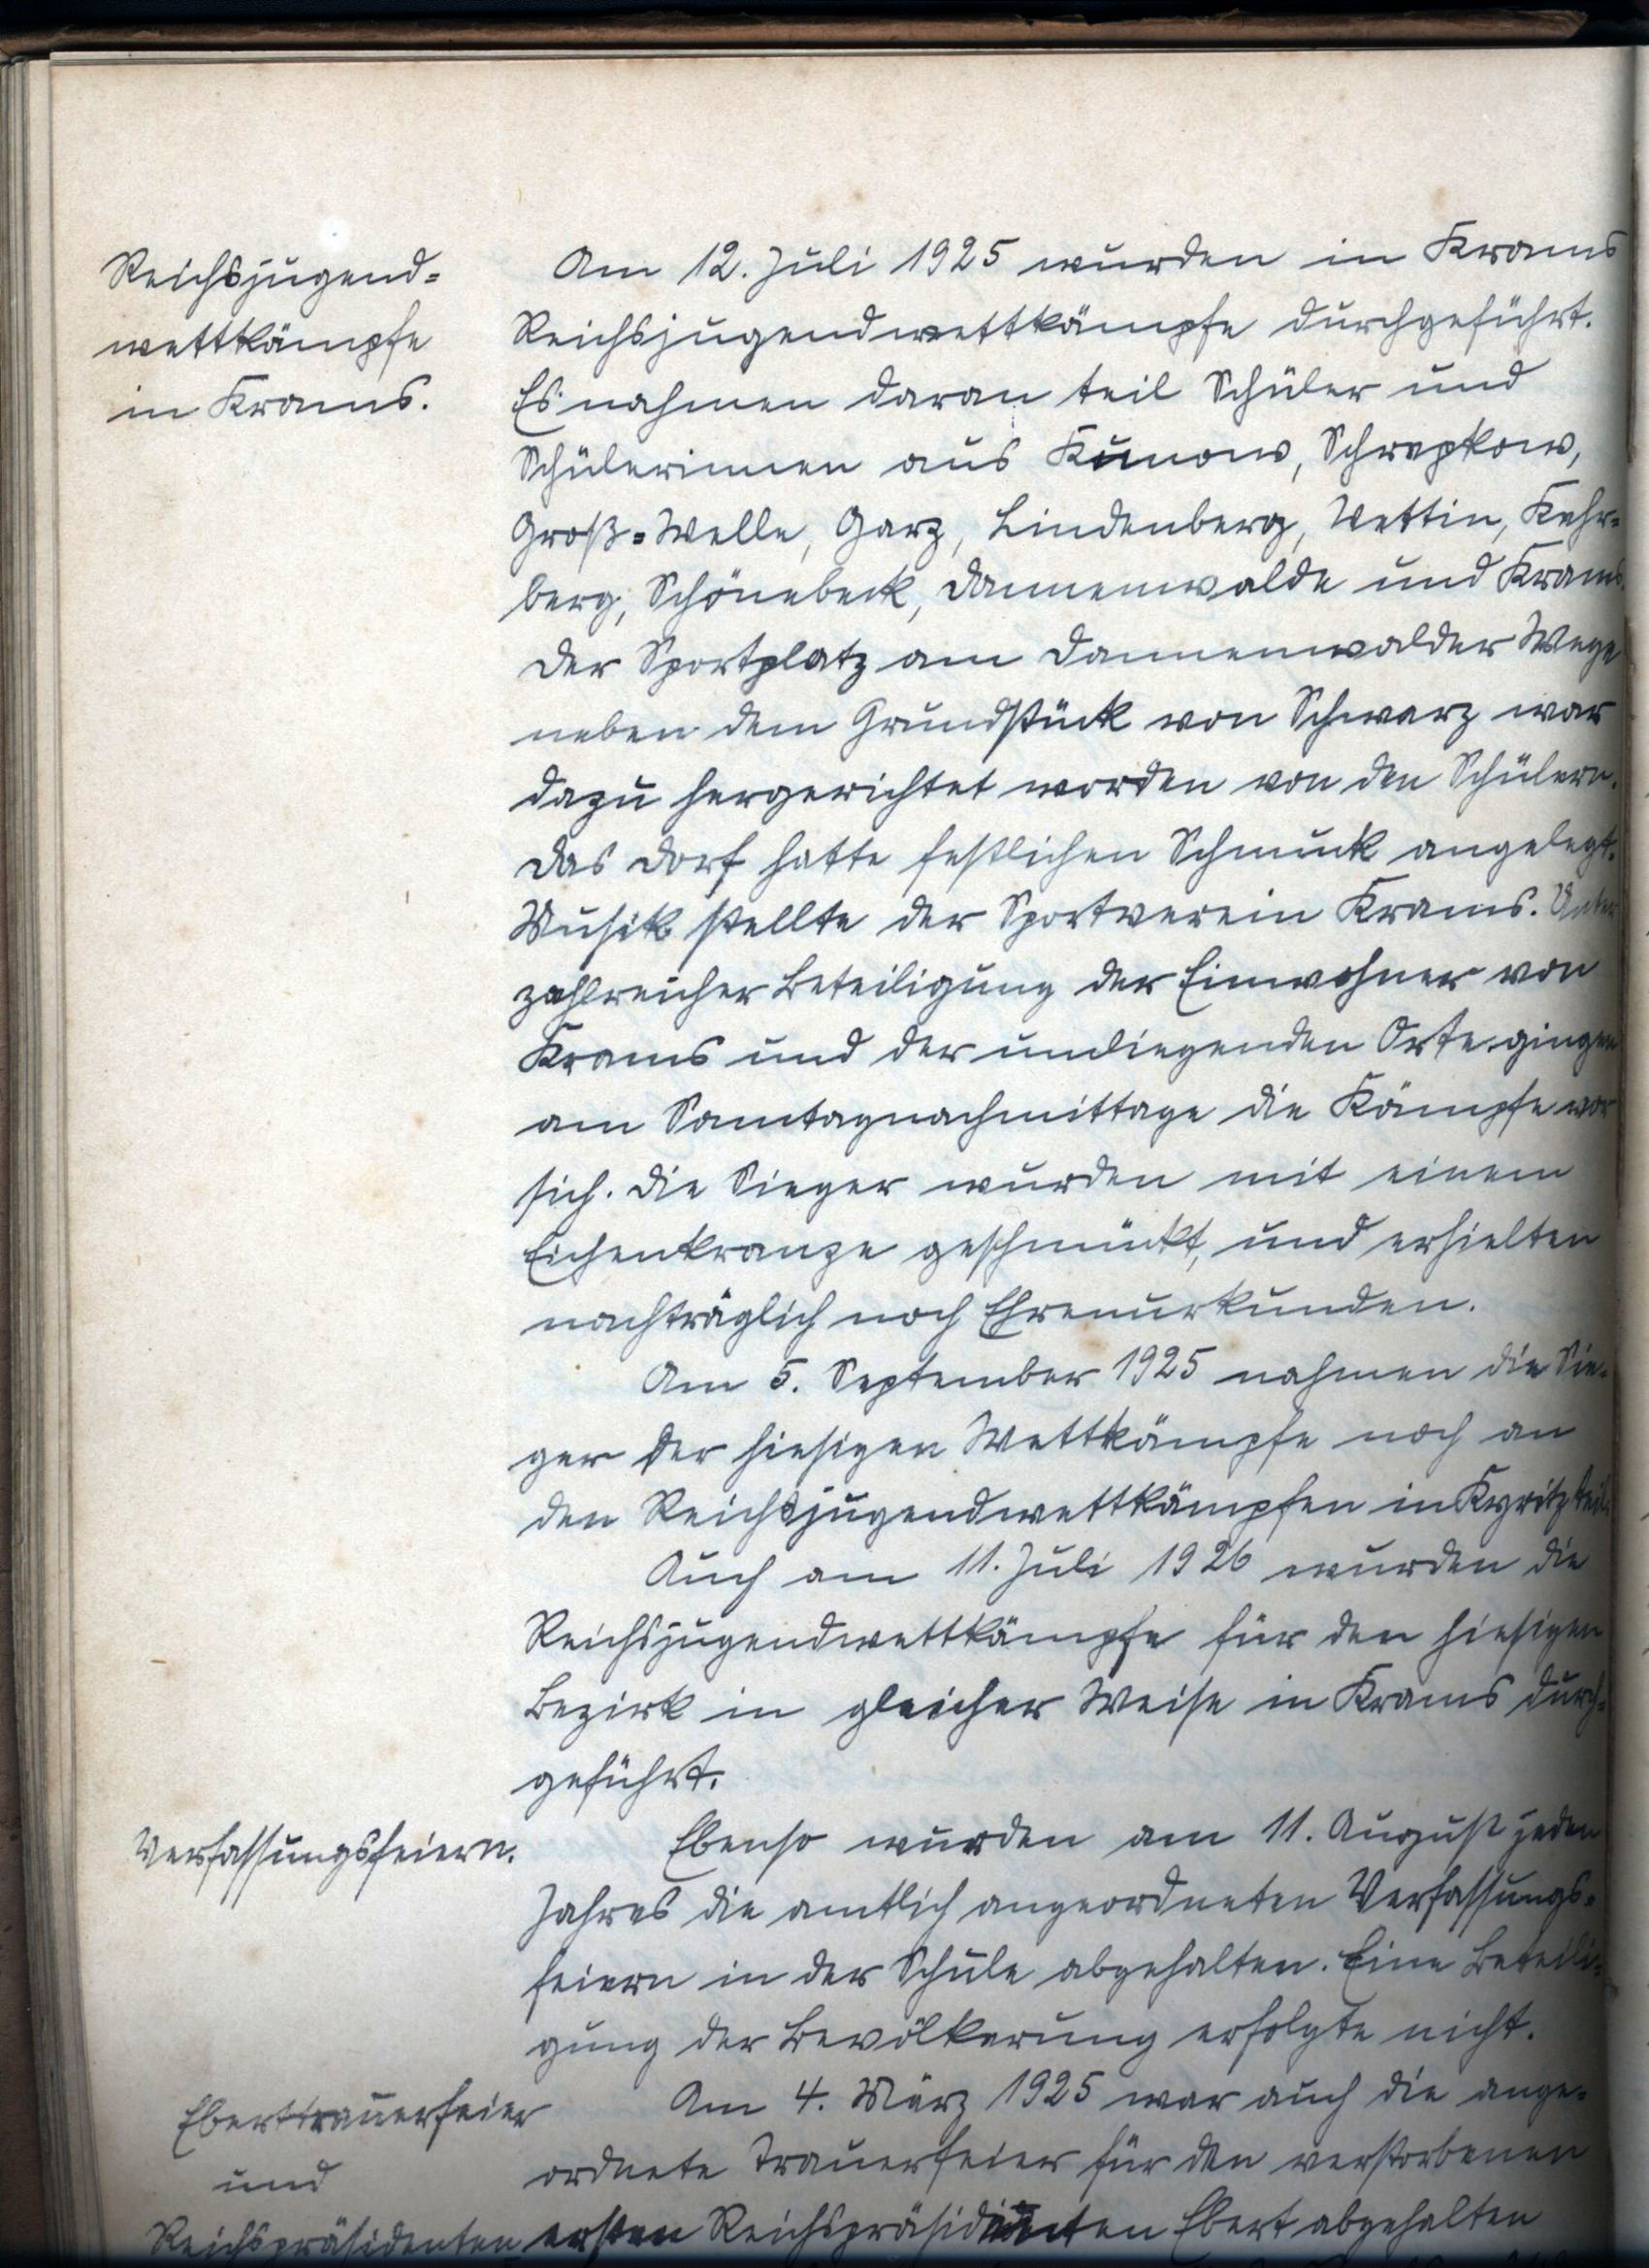 Reichsjugend=
wettkämpfe
in Krams.
Am 12. Juli 1925 wurden in Krams
Reichsjugendwettkämpfe durchgeführt.
Es nahmen daran teil Schüler und
Schülerinnen aus Kunow, Schrepkow,
Groß=Welle, Garz, Lindenberg, Vettin, Kehr=
berg, Schönebeck, Dannenwalde und Krams.
Der Sportplatz am Dannenwalder Wege
neben dem Grundstück von Schwarz war
dazu hergerichtet worden von den Schülern.
Das Dorf hatte festlichen Schmuck angelegt.
Musik stellte der Sportverein Krams. Unter
zahlreicher Beteiligung der Einwohner von
Krams und der umliegenden Orte gingen
am Sonntagnachmittage die Kämpfe vor
sich. Die Sieger wurden mit einem
Eichenkranze geschmückt, und erhielten
nachträglich noch Ehrenurkunden.
Am 5. September 1925 nahmen die Sie=
ger der hiesigen Wettkämpfe noch an
den Reichsjugendwettkämpfen in Kyritz teil.
Auch am 11. Juli 1926 wurden die
Reichsjugendwettkämpfe für den hiesigen
Bezirk in gleicher Weise in Krams durch=
geführt.
Verfassungsfeiern.
Ebenso wurden am 11. August jeden
Jahres die amtlich angeordneten Verfassungs=
feiern in der Schule abgehalten. Eine Beteili=
gung der Bevölkerung erfolgte nicht.
Eberttrauerfeier
und
Reichspräsidenten
Am 4. März 1925 war auch die ange=
ordnete Trauerfeier für den verstorbenen
ersten Reichspräsidenten Ebert abgehalten